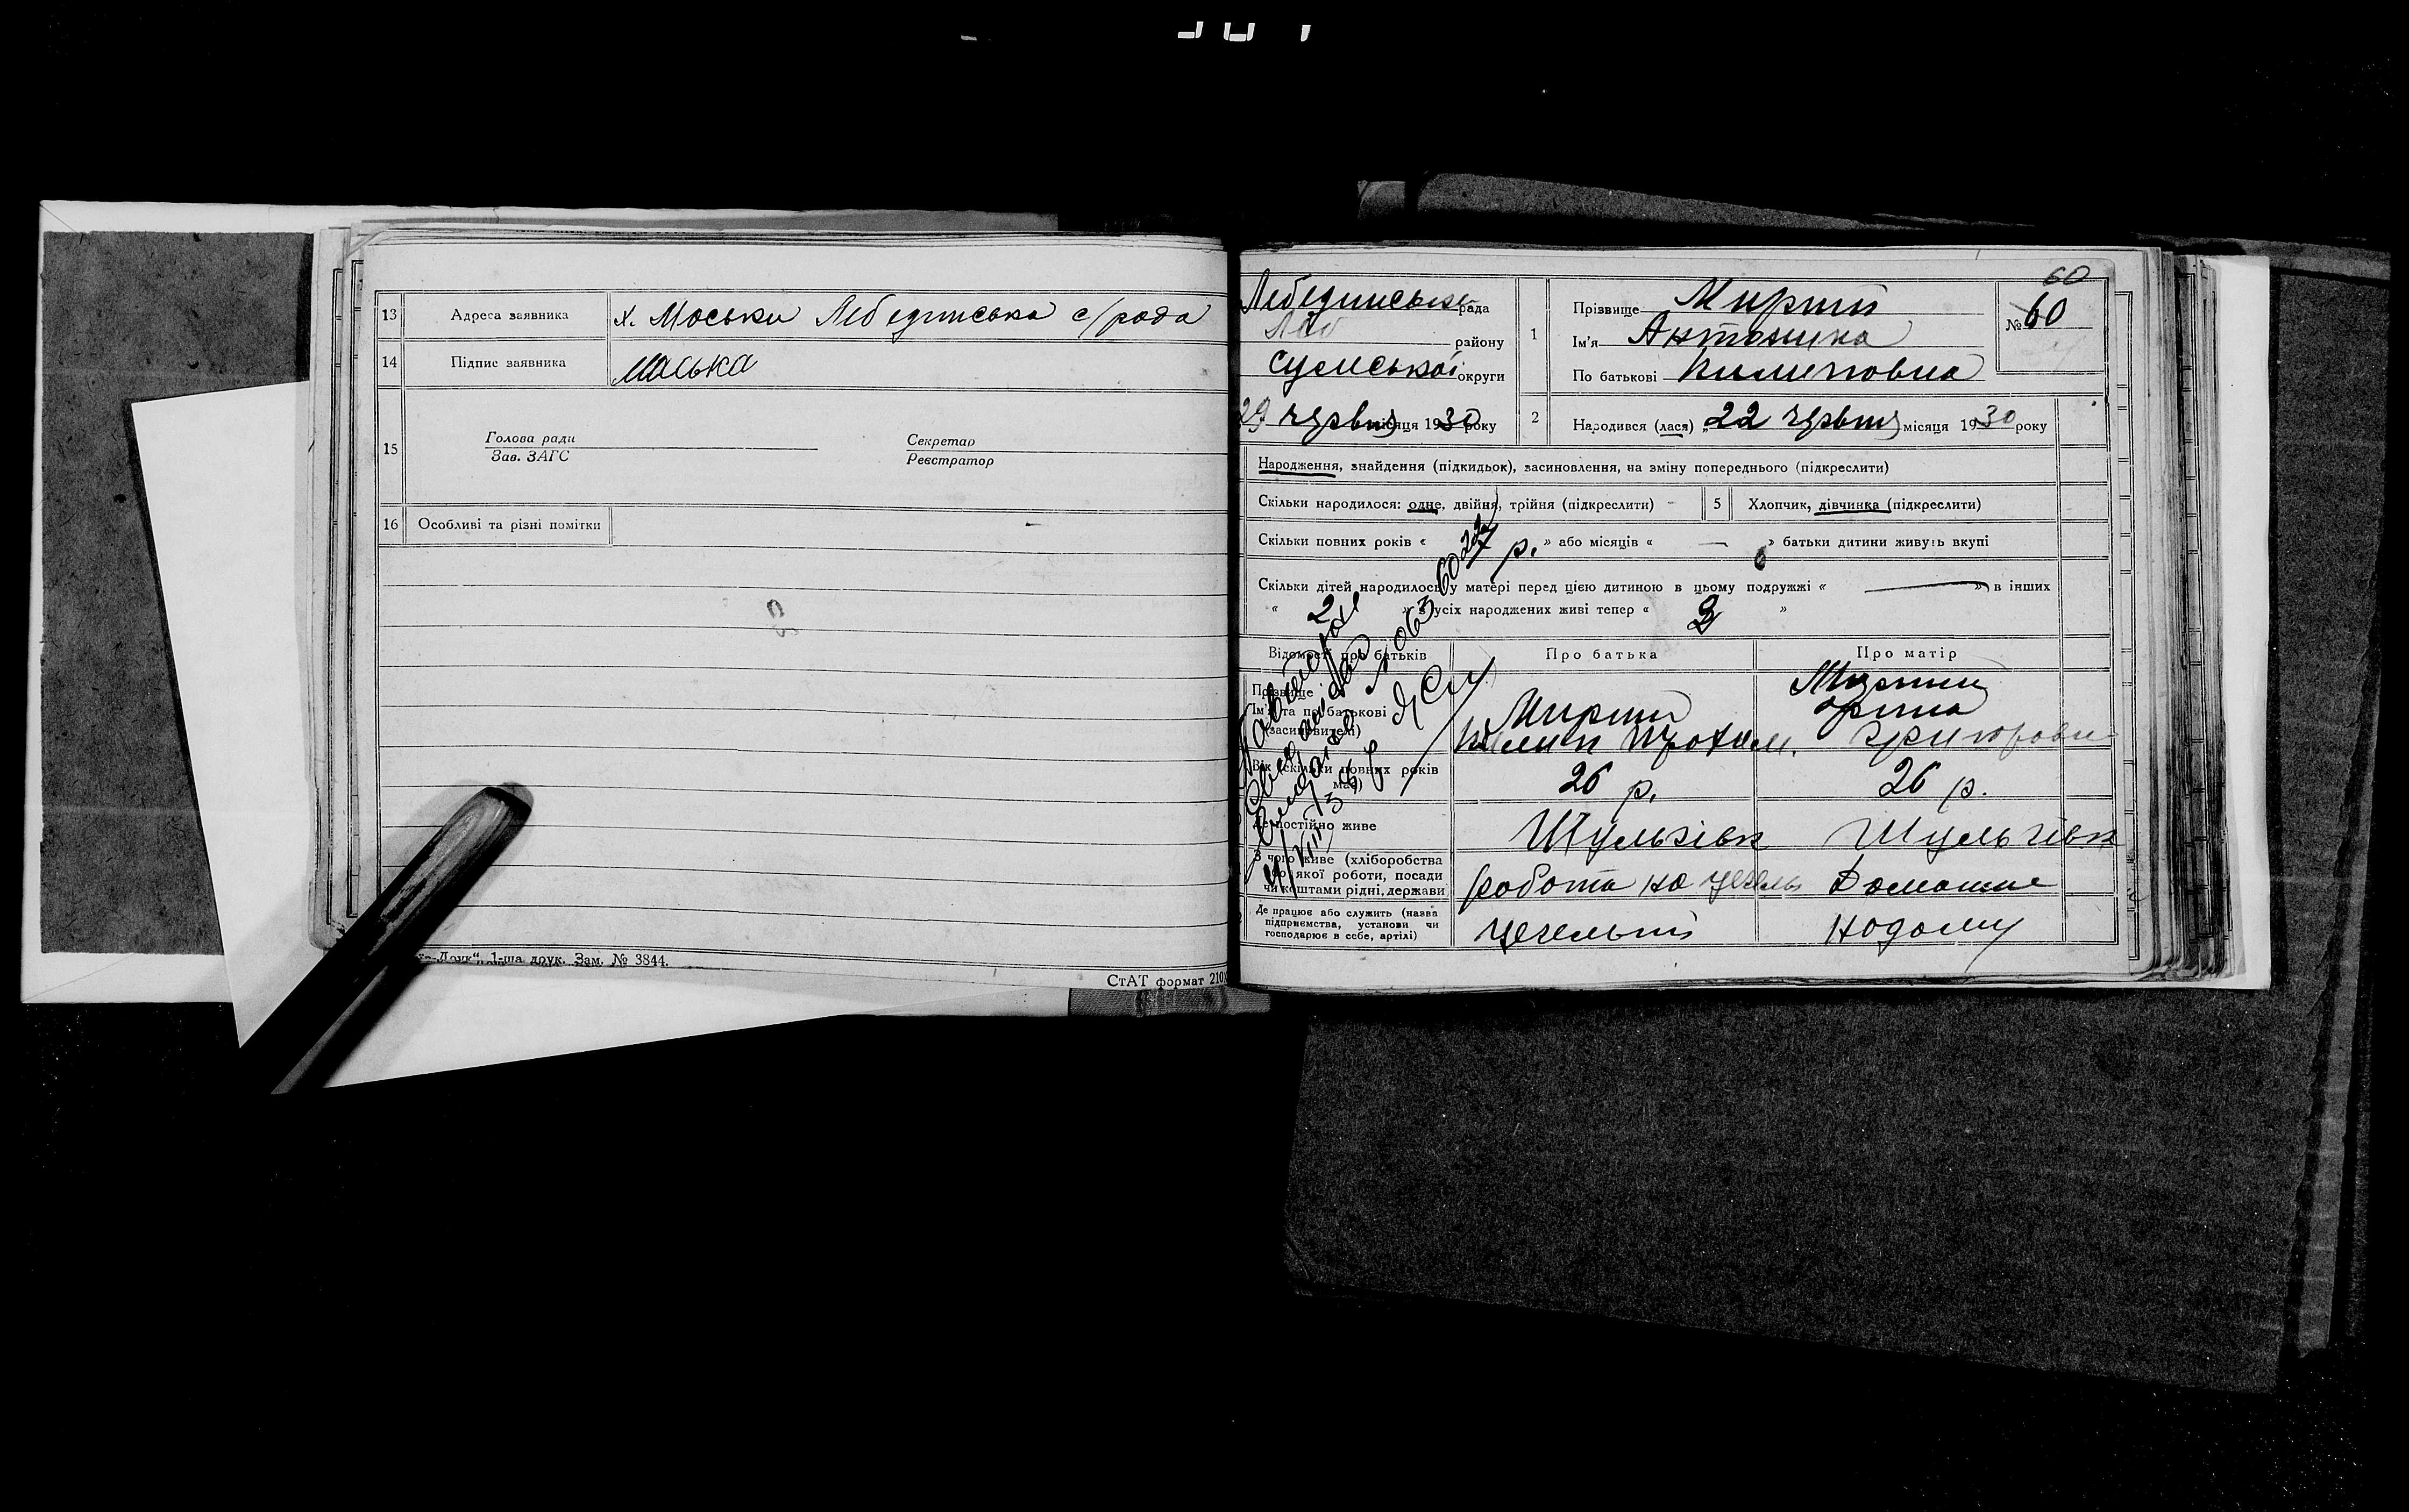 13 Адреса заявника х. Моськи Лебединська с/рада
14 Підпис заявника Моська
15 Голова ради Секретар
Зав. ЗАГС Реєстратор
16 Особливі та різні помітки
1-ша друк. Зам. № 3844.
СтАТ формат 210
60
Лебединська рада
Леб району
Сумської округи
29 червня місяця 1930 року
1 Прізвище Мирний
Ім'я Антонина
По батькові Пилиповна
№ 60
2 Народився (лася) „22 червня місяця 1930 року
Народження, знайдення (підкидьок), засиновлення, на зміну попереднього (підкреслити)
Скільки народилося: одне, двійня, трійня (підкреслити) 5 Хлопчик, дівчинка (підкреслити)
Скільки повних років « р. » або місяців « — » батьки дитини живуть вкупі
Скільки дітей народилось у матері перед цією дитиною в цьому подружжі « — » в інших
« 2 » з усіх народжених живі тепер « »
Відомості про батьків Про батька Про матір
Прізвище
Ім'я та по батькові
(засиновителі)
Мирний
Пилип Прохом.
Мирний
Орина
Григоровн
Вік (скільки повних років має) 26 р. 26 р.
Де постійно живе Шульгівк Шульгівк
З чого живе (хліборобства
якої роботи, посади
чи коштами рідні, держави
робота на цегель Домашне
Де працює або служить (назва
підприємства, установи чи
господарює в себе, артілі)
цегельні надому